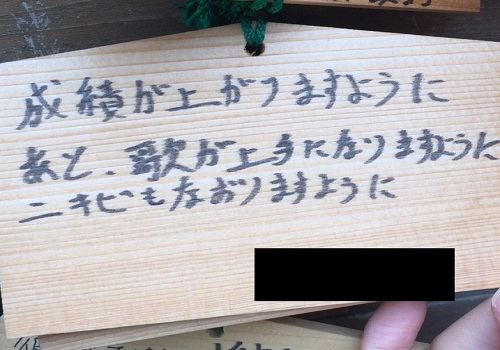 成績が上がりますように
あと、歌が上手になりますように
ニキビもなおりますように